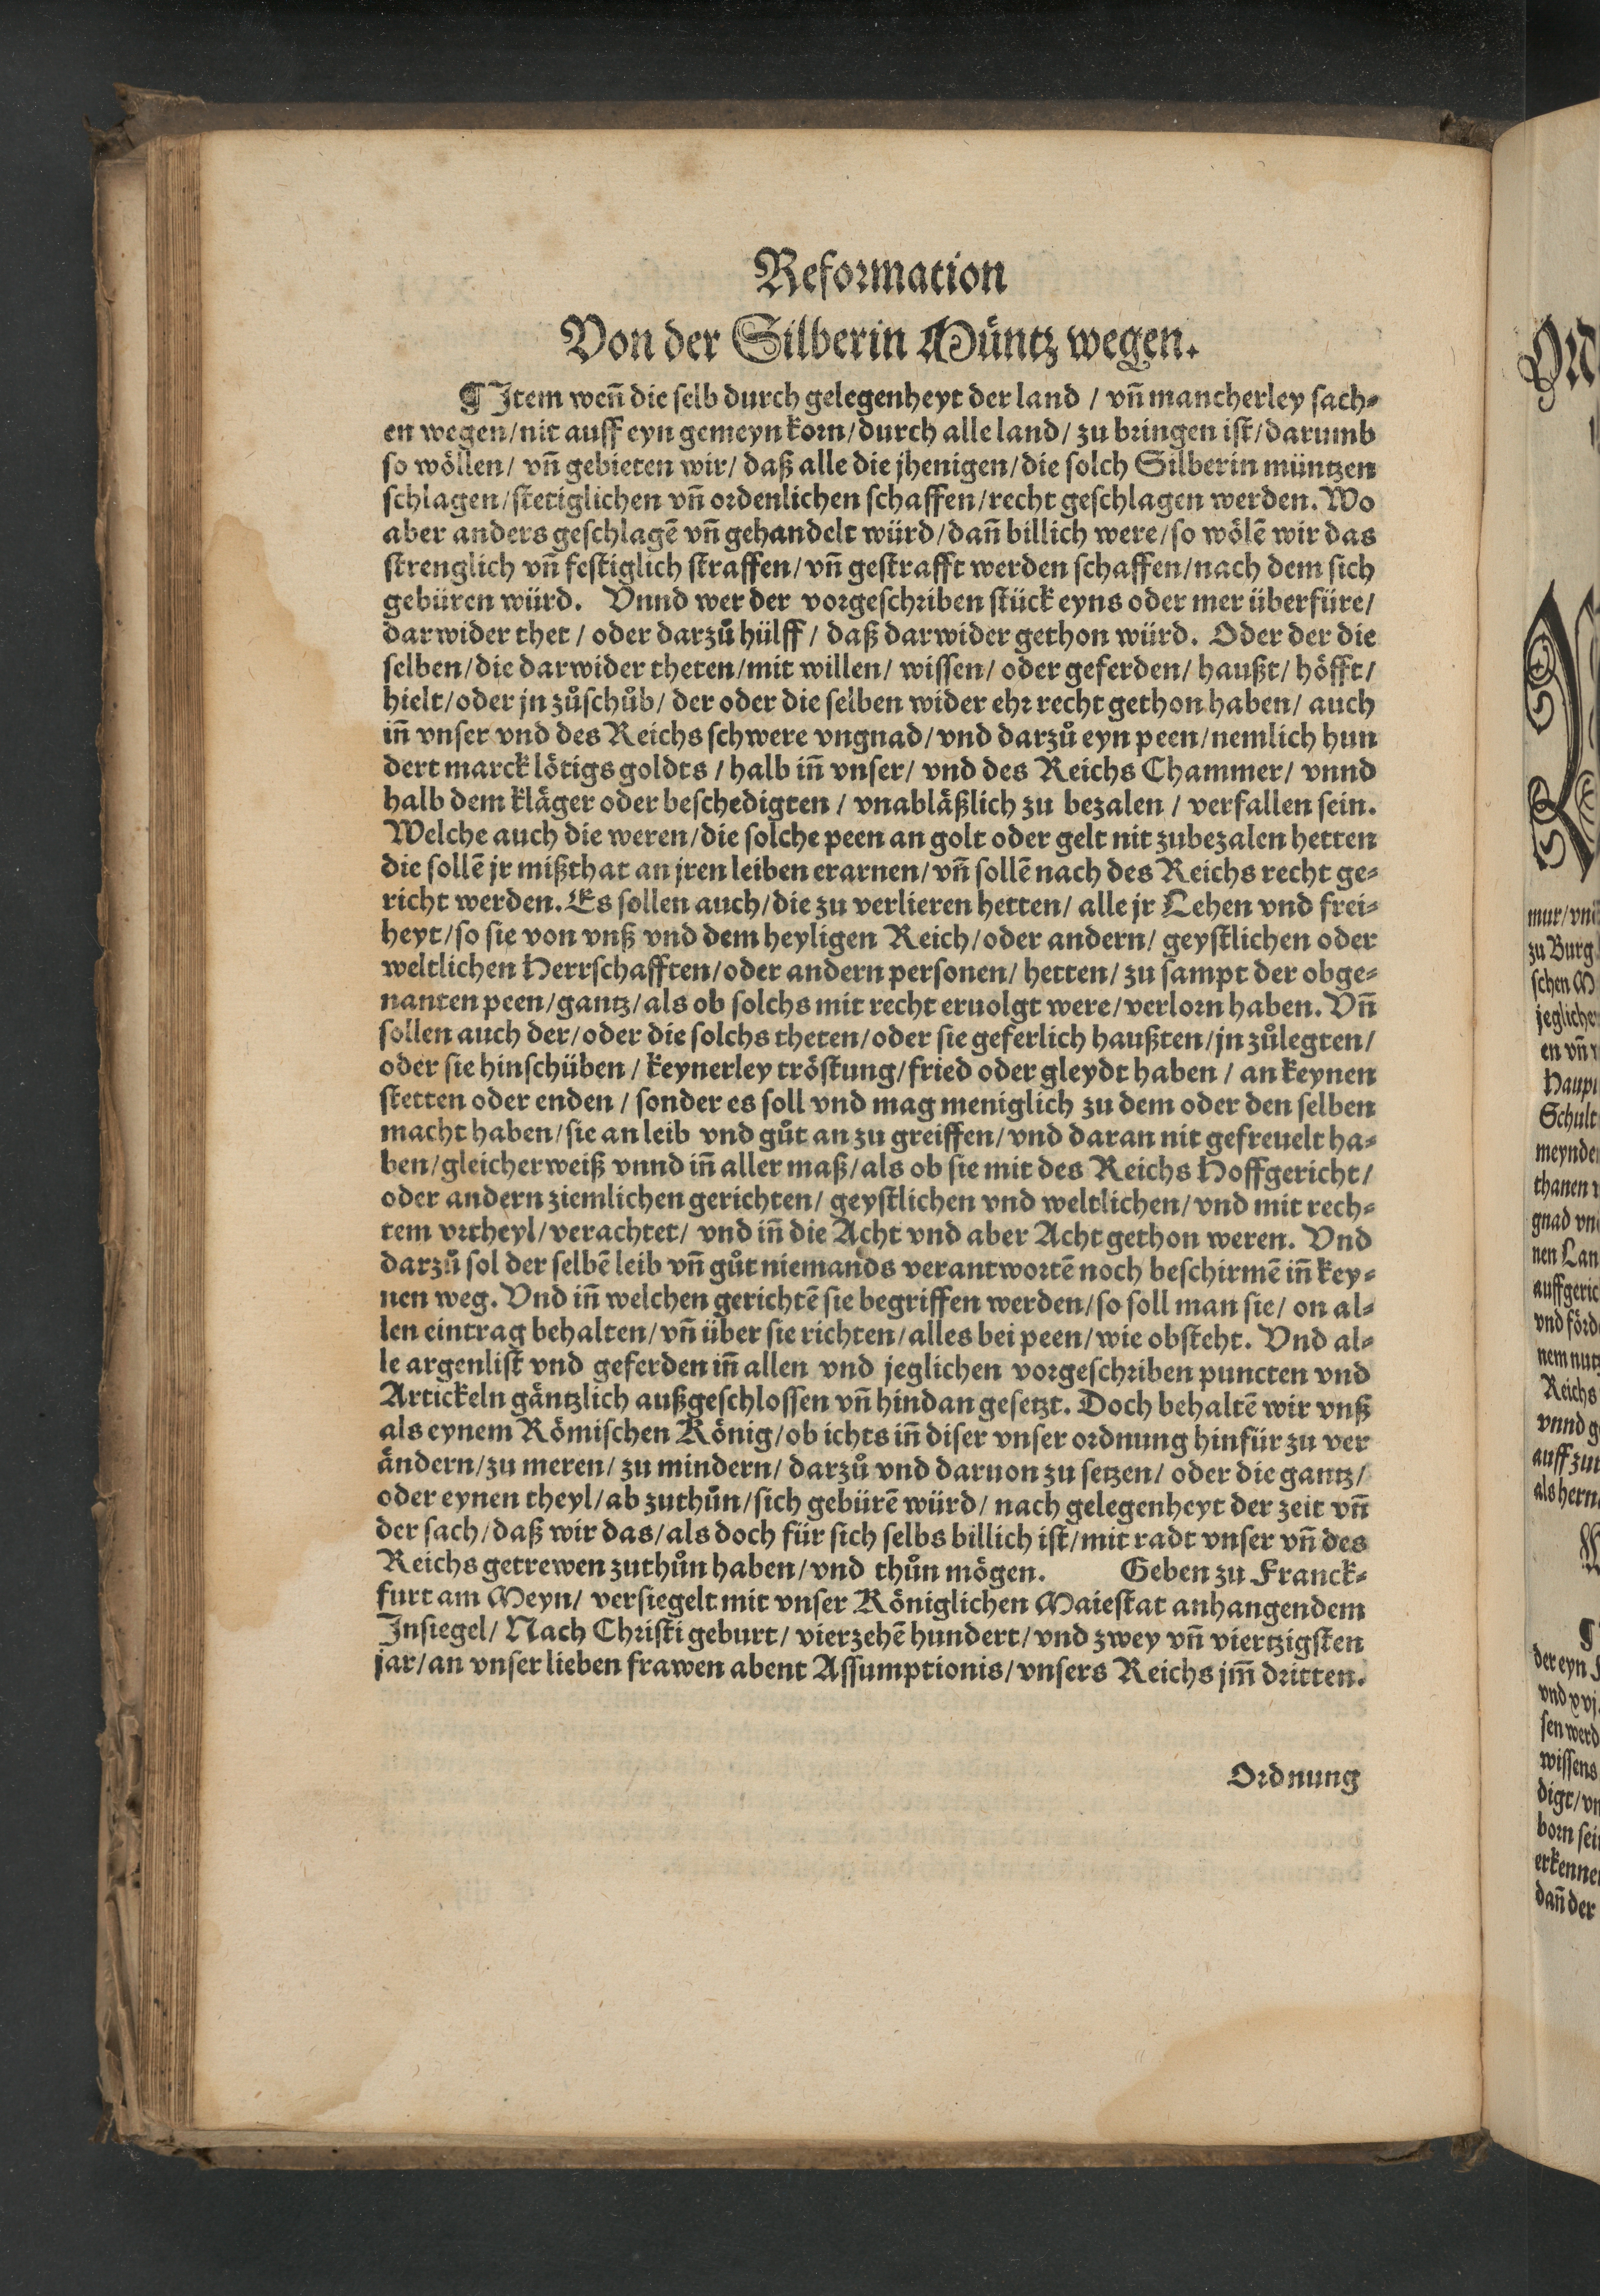 Reformation
Von der Silberin Müntz wegen.
¶ Item weñ die ſelb durch gelegenheyt der land / vñ mancherley ſach⸗
en wegen/nit auff eyn gemeyn korn/durch alle land/ zu bringen iſt/darumb
ſo wöllen/ vñ gebieten wir/ daß alle die jhenigen/die ſolch Silberin müntzen
ſchlagen/ſtetiglichen vñ ordenlichen ſchaffen/recht geſchlagen werden. Wo
aber anders geſchlagẽ vñ gehandelt würd/dañ billich were/ſo wölẽ wir das
ſtrenglich vñ feſtiglich ſtraffen/vñ geſtrafft werden ſchaffen/nach dem ſich
gebüren würd. Vnnd wer der vorgeſchriben ſtück eyns oder mer überfüre/
darwider thet / oder darzů hülff / daß darwider gethon würd. Oder der die
ſelben/die darwider theten/mit willen/ wiſſen/ oder geferden/ haußt/ höfft/
hielt/oder jn zůſchůb/ der oder die ſelben wider ehr recht gethon haben/ auch
iñ vnſer vnd des Reichs ſchwere vngnad/vnd darzů eyn peen/nemlich hun
dert marck lötigs goldts / halb iñ vnſer/ vnd des Reichs Chammer/ vnnd
halb dem kläger oder beſchedigten / vnabläßlich zu bezalen / verfallen ſein.
Welche auch die weren/die ſolche peen an golt oder gelt nit zubezalen hetten
die ſollẽ jr mißthat an jren leiben erarnen/vñ ſollẽ nach des Reichs recht ge⸗
richt werden. Es ſollen auch/die zu verlieren hetten/ alle jr Lehen vnd frei⸗
heyt/ſo ſie von vnß vnd dem heyligen Reich/oder andern/ geyſtlichen oder
weltlichen Herrſchafften/oder andern perſonen/ hetten/ zu ſampt der obge⸗
nanten peen/gantz/als ob ſolchs mit recht eruolgt were/verlorn haben. Vñ
ſollen auch der/oder die ſolchs theten/oder ſie geferlich haußten/jn zůlegten/
oder ſie hinſchüben / keynerley tröſtung/fried oder gleydt haben / an keynen
ſtetten oder enden / ſonder es ſoll vnd mag meniglich zu dem oder den ſelben
macht haben/ſie an leib vnd gůt an zu greiffen/vnd daran nit gefreuelt ha⸗
ben/gleicherweiß vnnd iñ aller maß/als ob ſie mit des Reichs Hoffgericht/
oder andern ziemlichen gerichten/ geyſtlichen vnd weltlichen/vnd mit rech⸗
tem vrtheyl/verachtet/ vnd iñ die Acht vnd aber Acht gethon weren. Vnd
darzů ſol der ſelbẽ leib vñ gůt niemands verantwortẽ noch beſchirmẽ iñ key⸗
nen weg. Vnd iñ welchen gerichtẽ ſie begriffen werden/ſo ſoll man ſie/ on al⸗
len eintrag behalten/vñ über ſie richten/alles bei peen/wie obſteht. Vnd al⸗
le argenliſt vnd geferden iñ allen vnd jeglichen vorgeſchriben puncten vnd
Artickeln gäntzlich außgeſchloſſen vñ hindan geſetzt. Doch behaltẽ wir vnß
als eynem Römiſchen König/ob ichts iñ diſer vnſer ordnung hinfür zu ver
ändern/zu meren/ zu mindern/ darzů vnd daruon zu ſetzen/ oder die gantz/
oder eynen theyl/ab zuthůn/ſich gebürẽ würd/ nach gelegenheyt der zeit vñ
der ſach/daß wir das/als doch für ſich ſelbs billich iſt/mit radt vnſer vñ des
Reichs getrewen zuthůn haben/vnd thůn mögen. Geben zu Franck⸗
furt am Meyn/ verſiegelt mit vnſer Königlichen Maieſtat anhangendem
Inſiegel/ Nach Chriſti geburt/ vierzehẽ hundert/vnd zwey vñ viertzigſten
jar/an vnſer lieben frawen abent Aſſumptionis/vnſers Reichs jm̃ dritten.
Ordnung
mur/vn
zu Burg
ſchen M
jeglicher
en vñ
Haupt
Schult
meynde
thanen
gnad vn
nen Lan
auffgeric
vnd förd
nem nutz
Reichs
vnnd g
auff zu
als hern
der eyn
vnd xvj.
ſen werd
wiſſens
digt/vn
born ſei
erkenne
dañ der